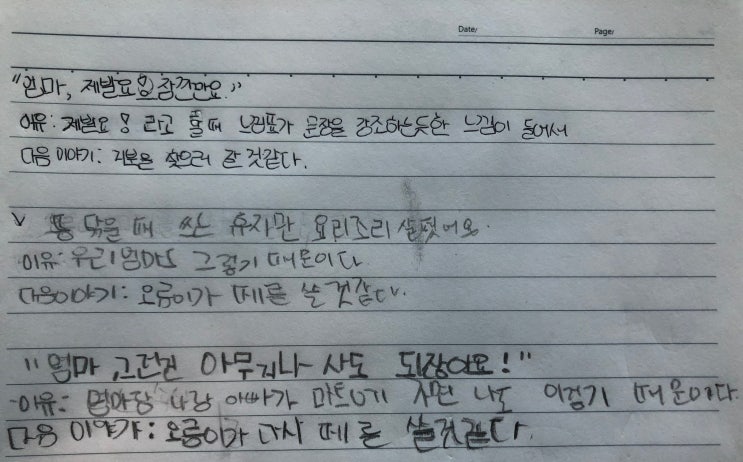 Date/ Page/
"엄마, 제발요! 잠깐만요."
이유: 제발요! 라고 할 때 느낌표가 문장을 강조하는듯한 느낌이 들어서
다음 이야기: 리본을 찾으러 갈 것같다.
V 똥 닦을 때 쓰는 휴지만 요리조리 살펏어요.
이유: 우리엄마도 그렇기 때문이다.
다음이야기: 오름이가 떼를 쓸 것같다.
"엄마 고런건 아무거나 사도 되잖아요!"
이유: 엄마랑 나랑 아빠가 마트에 가면 나도 이렇기 때문이다.
다음 이야가: 오름이가 다시 떼를 쓸것같다.